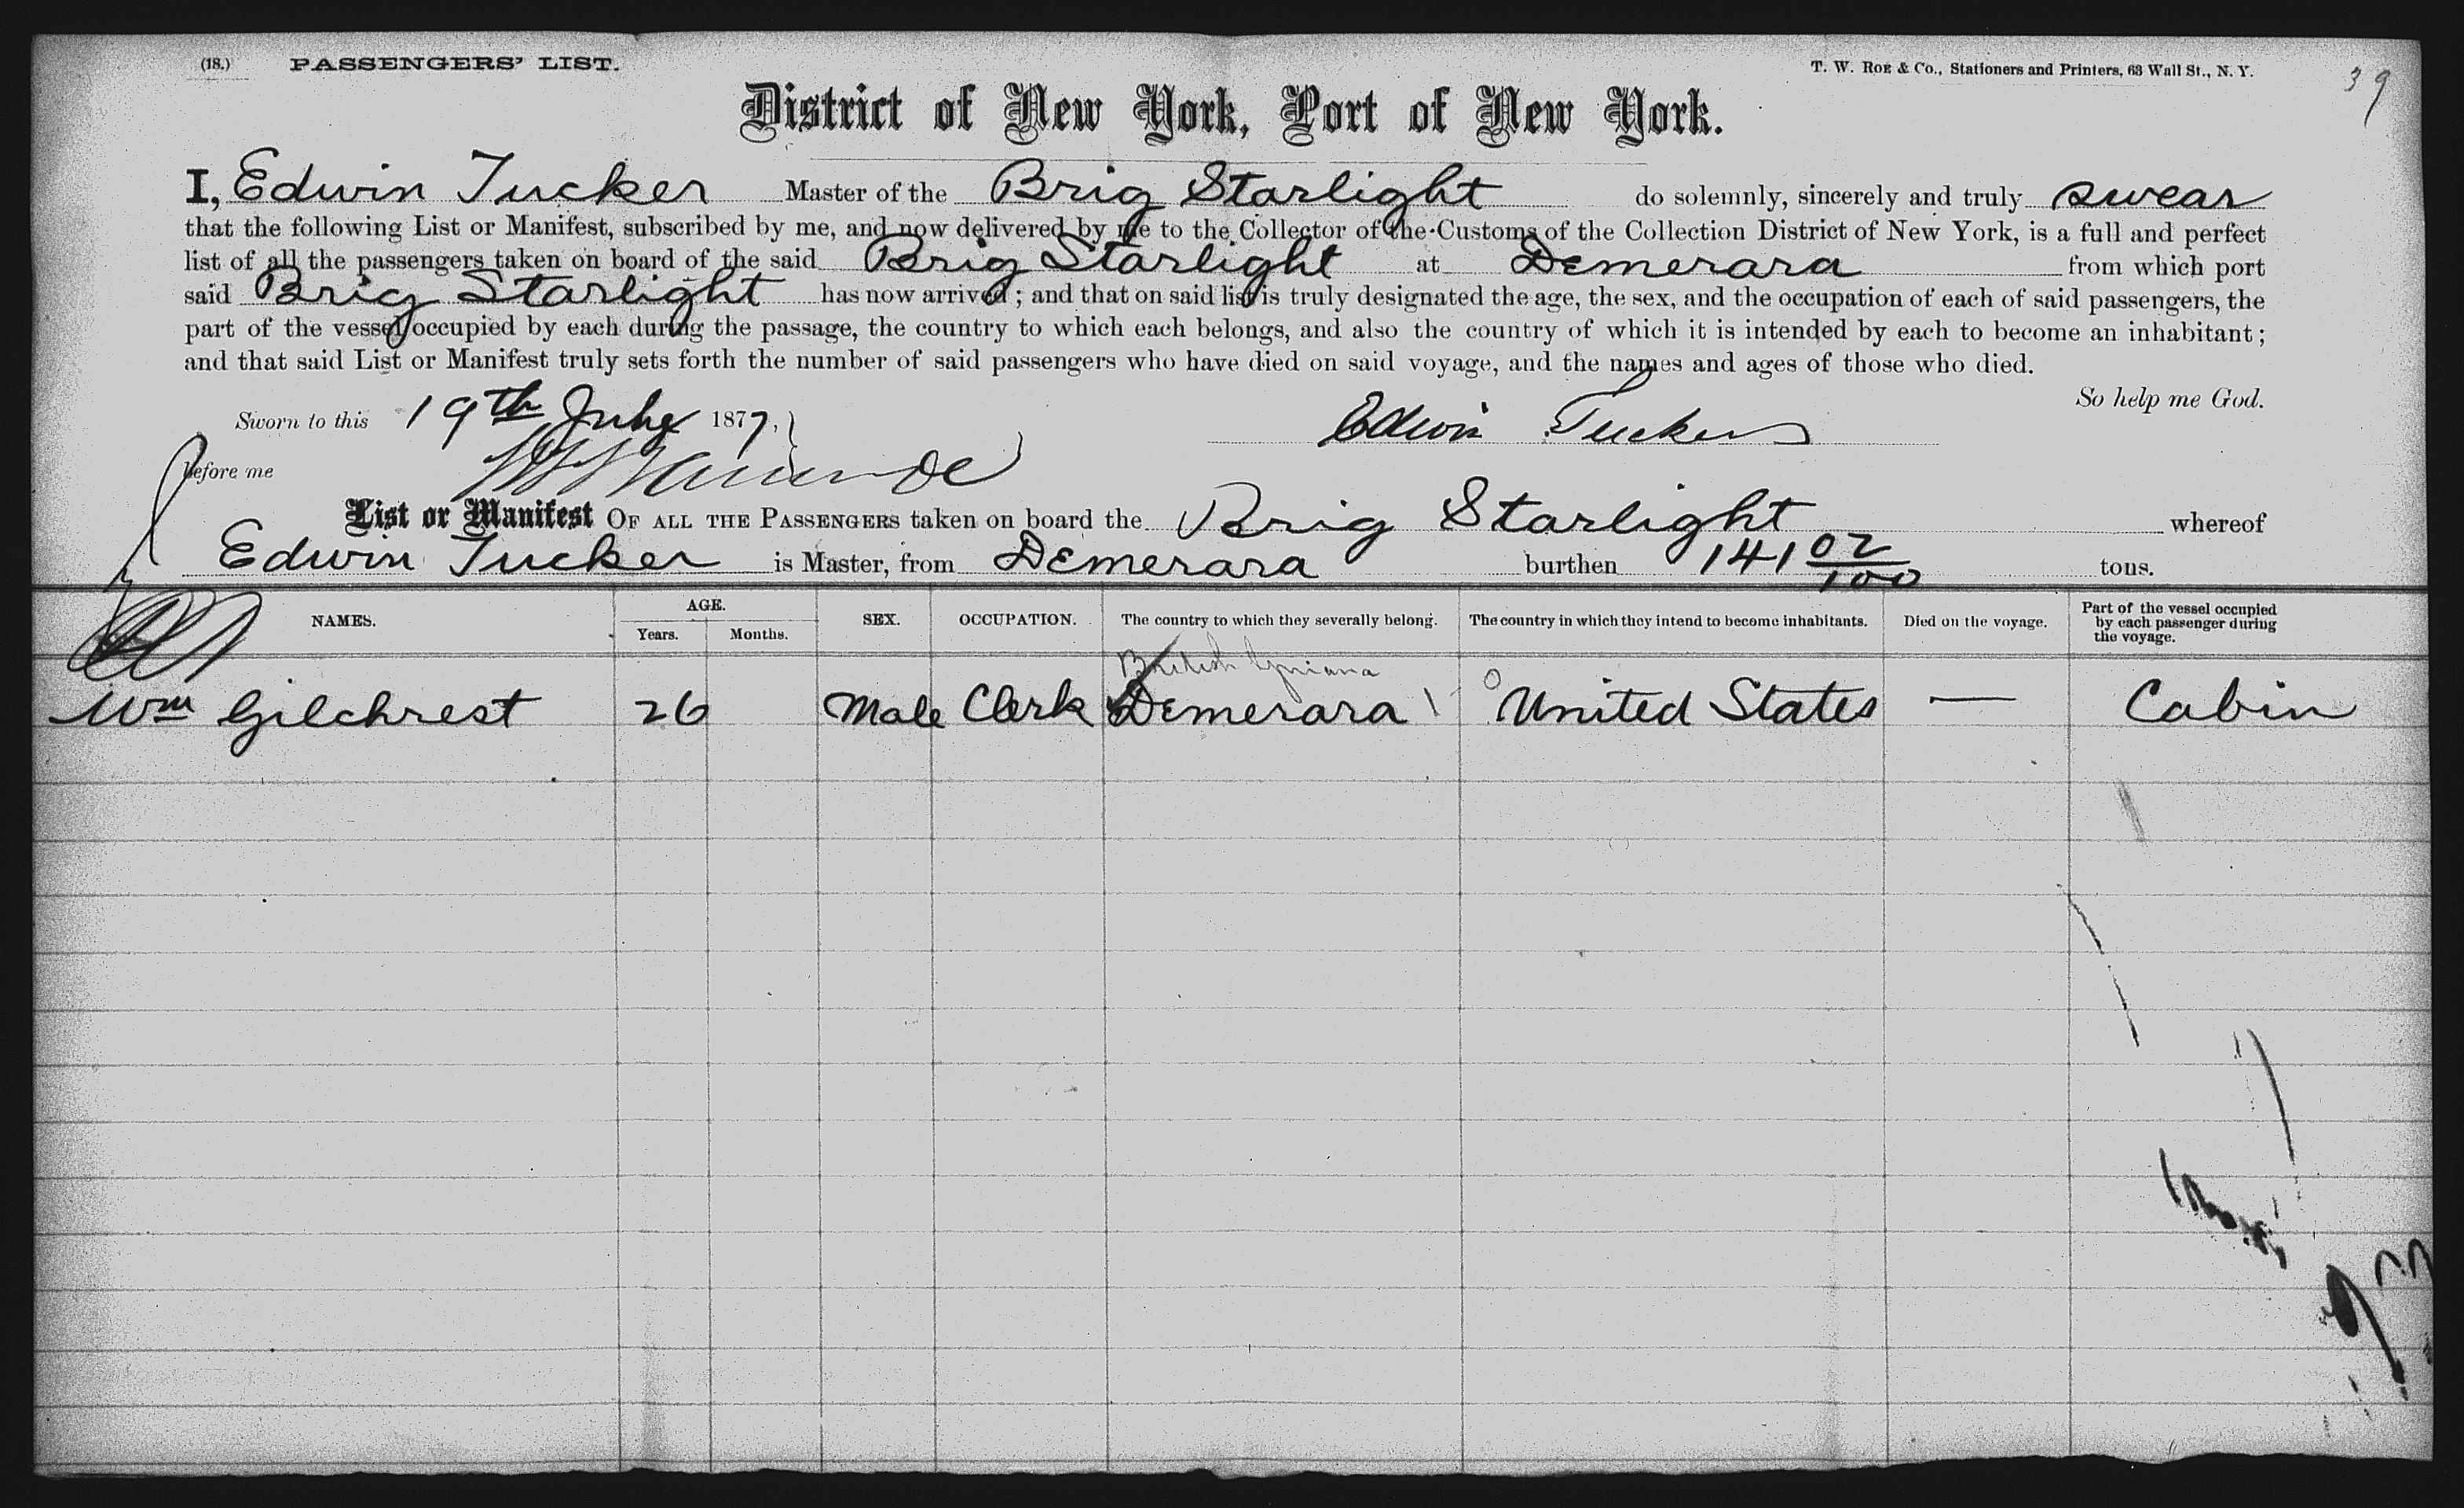 (18.) PASSENGERS' LIST. T. W. Roe & Co., Stationers and Printers, 63 Wall St., N. Y. 39
District of New York, Port of New York.
I, Edwin Tucker Master of the Brig Starlight do solemnly, sincerely and truly swear
that the following List or Manifest, subscribed by me, and now delivered by me to the Collector of the Customs of the Collection District of New York, is a full and perfect
list of all the passengers taken on board of the said Brig Starlight at Demerara from which port
said Brig Starlight has now arrived; and that on said list is truly designated the age, the sex, and the occupation of each of said passengers, the
part of the vessel occupied by each during the passage, the country to which each belongs, and also the country of which it is intended by each to become an inhabitant;
and that said List or Manifest truly sets forth the number of said passengers who have died on said voyage, and the names and ages of those who died.
So help me God.
Sworn to this 19th July 1877, Edwin Tucker
before me
List or Manifest OF ALL THE PASSENGERS taken on board the Brig Starlight whereof
Edwin Tucker is Master, from Demerara burthen 141 02/100 tons.
NAMES. AGE. Years. Months. SEX. OCCUPATION. The country to which they severally belong. The country in which they intend to become inhabitants. Died on the voyage. Part of the vessel occupied by each passenger during the voyage.
British Guiana
Wm Gilchrest 26 Male Clerk Demerara United States — Cabin